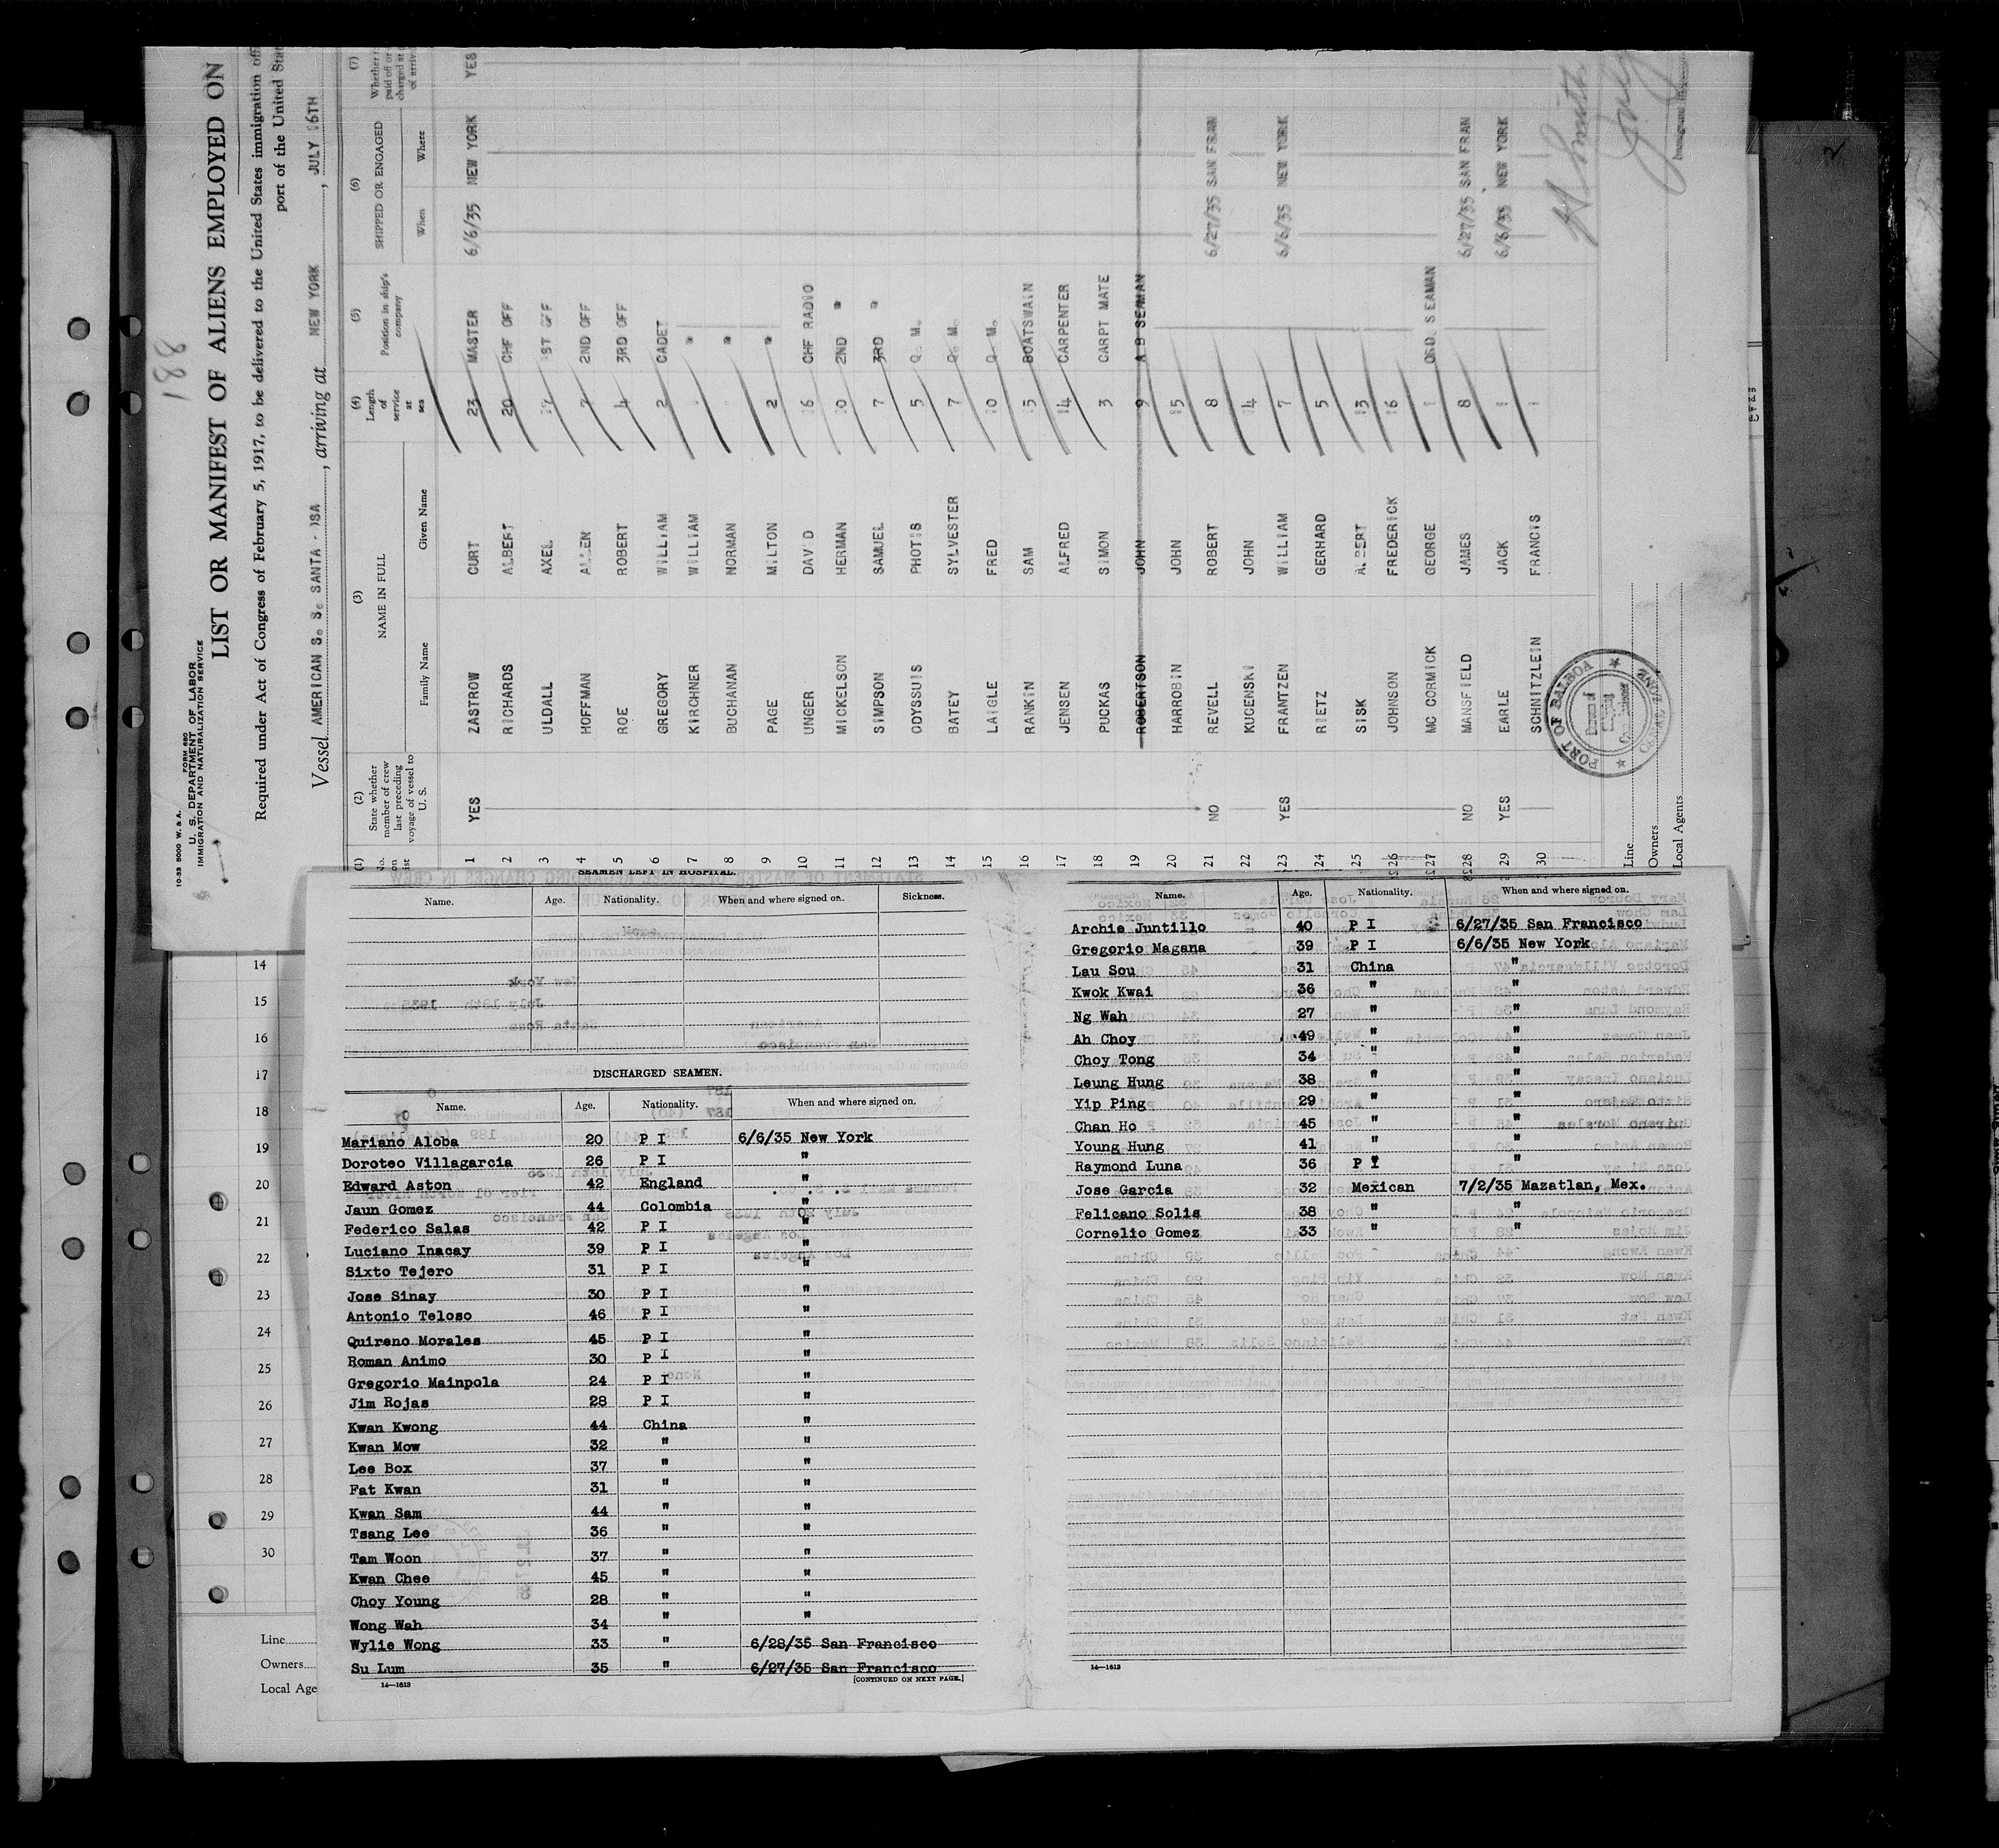 188
10-33 5000 W. & A.
FORM 680
U. S. DEPARTMENT OF LABOR
IMMIGRATION AND NATURALIZATION SERVICE
LIST OR MANIFEST OF ALIENS EMPLOYED ON
Required under Act of Congress of February 5, 1917, to be delivered to the United States immigration
port of the United
Vessel AMERICAN S. S. SANTA , arriving at NEW YORK , JULY 16TH
(1) (2) (3) (4) (5) (6) (7)
State whether member of crew last preceding voyage of vessel to U. S.
NAME IN FULL
Family Name Given Name
Length of service at sea
Position in ship's company
SHIPPED OR ENGAGED
When Where
1 YES ZASTROW CURT 23 MASTER 6/6/35 NEW YORK YES
2 RICHARDS ALBERT 20 CHF OFF
3 ULDALL AXEL 17 1ST OFF
4 HOFFMAN ALLEN 7 2ND OFF
5 ROE ROBERT 4 3RD OFF
6 GREGORY WILLIAM 2 CADET
7 KIRCHNER WILLIAM "
8 BUCHANAN NORMAN "
9 PAGE MILTON 2 "
10 UNGER DAVID 16 CHF RADIO
11 MICKELSON HERMAN 10 2ND "
12 SIMPSON SAMUEL 7 3RD "
13 ODYSSUIS PHOTIS 5 Q. M.
14 BATEY SYLVESTER 7 Q. M.
15 LAIGLE FRED 10 Q. M.
16 RANKIN SAM 15 BOATSWAIN
17 JENSEN ALFRED 14 CARPENTER
18 PUCKAS SIMON 3 CARPT MATE
19 ROBERTSON JOHN 9 A B SEAMAN
20 HARROBIN JOHN 15
21 NO REVELL ROBERT 8 6/27/35 SAN FRAN
22 KUCENSKI JOHN 14
23 YES FRANTZEN WILLIAM 7 6/6/35 NEW YORK
24 RIETZ GERHARD 5
25 SISK ALBERT 13
26 JOHNSON FREDERICK 16
27 MC CORMICK GEORGE 1 ORD. SEAMAN
28 NO MANSFIELD JAMES 8 6/27/35 SAN FRAN
29 YES EARLE JACK 1 6/6/35 NEW YORK
30 SCHNITZLEIN FRANCIS 1
PORT OF BALBOA
CANAL ZONE
Line
Owners
Local Agents
SEAMEN LEFT IN HOSPITAL.
Name. Age. Nationality. When and where signed on. Sickness.
DISCHARGED SEAMEN.
Name. Age. Nationality. When and where signed on.
Mariano Aloba 20 P I 6/6/35 New York
Doroteo Villagarcia 26 P I "
Edward Aston 42 England "
Jaun Gomez 44 Colombia "
Federico Salas 42 P I "
Luciano Inacay 39 P I "
Sixto Tejero 31 P I "
Jose Sinay 30 P I "
Antonio Teloso 46 P I "
Quireno Morales 45 P I "
Roman Animo 30 P I "
Gregorio Mainpola 24 P I "
Jim Rojas 28 P I "
Kwan Kwong 44 China "
Kwan Mow 32 " "
Lee Box 37 " "
Fat Kwan 31 " "
Kwan Sam 44 " "
Tsang Lee 36 " "
Tam Woon 37 " "
Kwan Chee 45 " "
Choy Young 28 " "
Wong Wah 34 " "
Wylie Wong 33 " 6/28/35 San Francisco
Su Lum 35 " 6/27/35 San Francisco
14—1613
[CONTINUED ON NEXT PAGE.]
Name. Age. Nationality. When and where signed on.
Archie Juntillo 40 P I 6/27/35 San Francisco
Gregorio Magana 39 P I 6/6/35 New York
Lau Sou 31 China "
Kwok Kwai 36 " "
Ng Wah 27 " "
Ah Choy 49 " "
Choy Tong 34 " "
Leung Hung 38 " "
Yip Ping 29 " "
Chan Ho 45 " "
Young Hung 41 " "
Raymond Luna 36 P I "
Jose Garcia 32 Mexican 7/2/35 Mazatlan, Mex.
Felicano Solis 38 " "
Cornelio Gomez 33 " "
14—1613
14
15
16
17
18
19
20
21
22
23
24
25
26
27
28
29
30
Line
Owners
Local Age